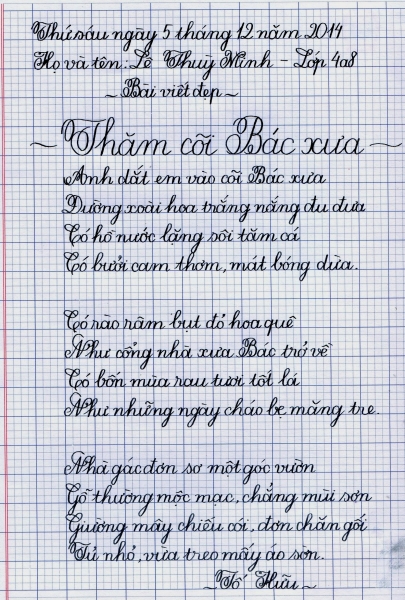 Thứ sáu ngày 5 tháng 12 năm 2014
Họ và tên: Lê Thuỳ Minh - Lớp 4a8
~ Bài viết đẹp ~
~ Thăm cõi Bác xưa ~
Anh dắt em vào cõi Bác xưa
Đường xoài hoa trắng nắng đu đưa
Có hồ nước lặng sôi tăm cá
Có bưởi cam thơm, mát bóng dừa.
Có rào râm bụt đỏ hoa quê
Như cổng nhà xưa Bác trở về
Có bốn mùa rau tươi tốt lá
Như những ngày cháo bẹ măng tre.
Nhà gác đơn sơ một góc vườn
Gỗ thường mộc mạc, chẳng mùi sơn
Giường mây chiếu cói, đơn chăn gối
Tủ nhỏ, vừa treo mấy áo sờn.
~ Tố Hữu ~